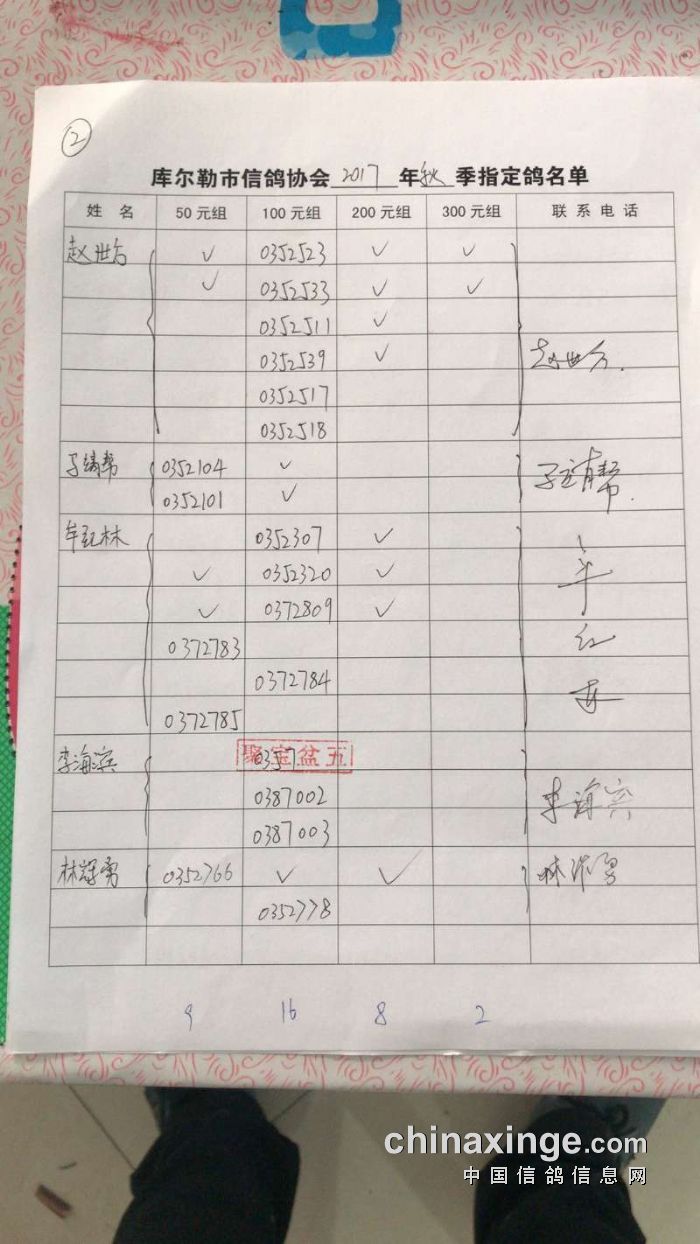 ②
库尔勒市信鸽协会 2017 年 秋 季指定鸽名单
姓 名 50元组 100元组 200元组 300元组 联系电话
赵世 ✓ 0352523 ✓ ✓
✓ 0352533 ✓ ✓
0352511 ✓
0352539 ✓ 赵世
0352517
0352518
帮 0352104 ✓ 帮
0352101 ✓
牟红林 0352307 ✓ 牟
✓ 0352320 ✓
✓ 0372809 ✓ 红
0372783
0372784 林
0372785
李海滨 0357
聚宝盆五
0387002 李海宾
0387003
林冠勇 0352766 ✓ ✓ 林 勇
0352778
9 16 8 2
chinaxinge.com
中国信鸽信息网